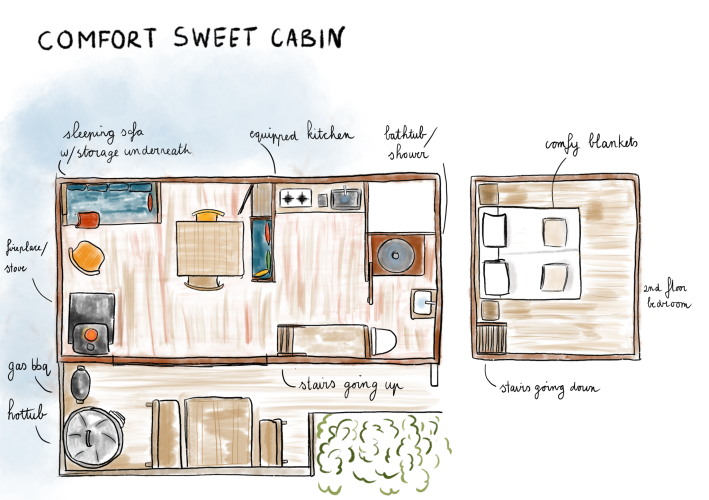 COMFORT SWEET CABIN
sleeping sofa
w/storage underneath
equipped kitchen
bathtub/
shower
comfy blankets
fireplace/
stove
2nd floor
bedroom
gas bbq
hottub
stairs going up
stairs going down